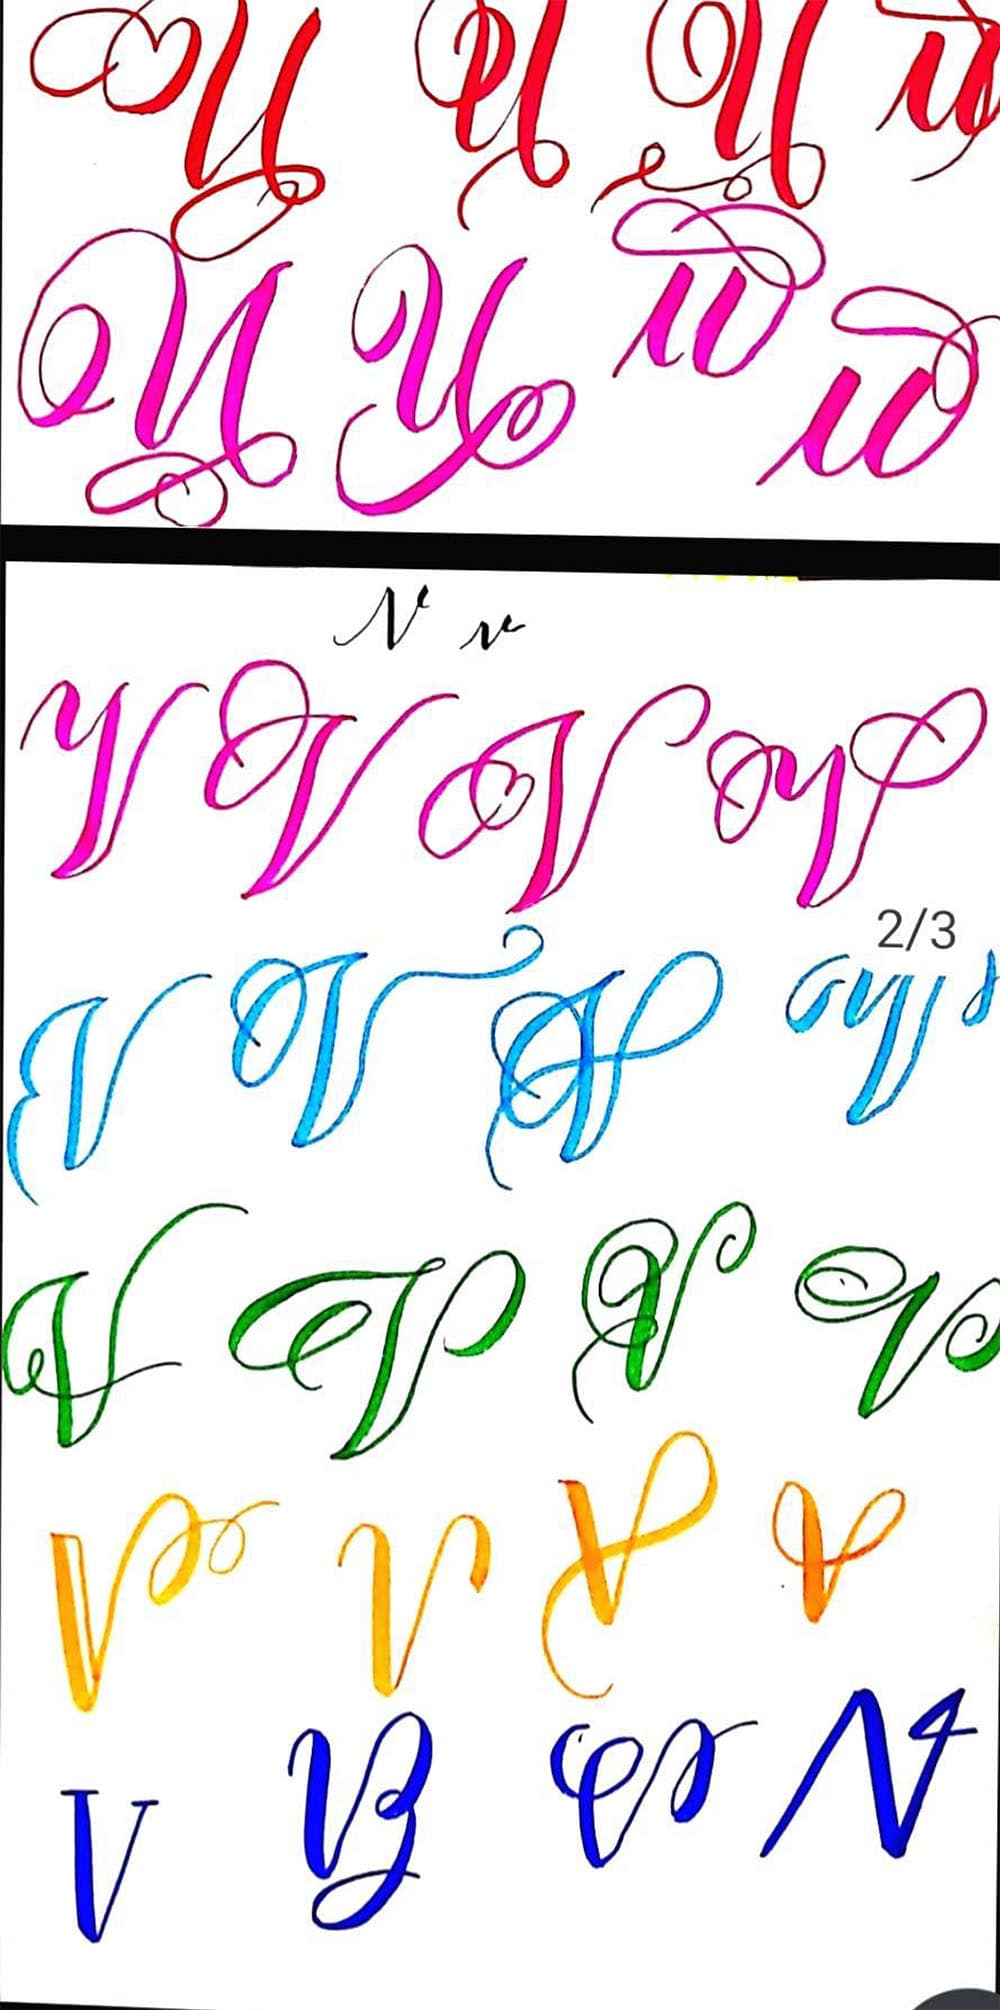 U U U u
U U u u
V v
V V V V
2/3
V V V V
V V V V
V V V V
V V V V